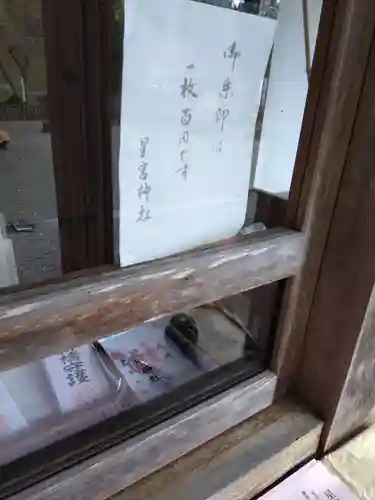 御朱印は
一枚百円です
星宮神社